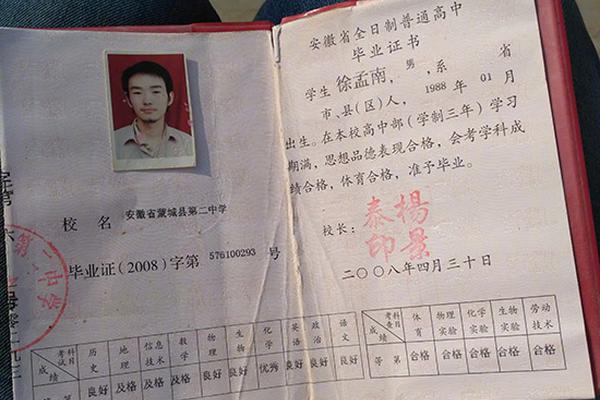 校名 安徽省蒙城县第二中学
毕业证(2008)字第 576100293 号
考试科目 历史 地理 信息技术 数学 物理 生物 化学 英语 政治 语文
成绩 良好 及格 及格 及格 良好 良好 优秀 良好 良好 良好
安徽省全日制普通高中
毕业证书
学生 徐孟南，男，系 省
市、县(区)人，1988 年 01 月
出生。在本校高中部(学制三年)学习
期满，思想品德表现合格，会考学科成
绩合格，体育合格，准予毕业。
校长：
泰楊
印景
二〇〇八年四月三十日
考查科目 体育 物理实验 化学实验 生物实验 劳动技术
成绩
等第 合格 合格 合格 合格 合格